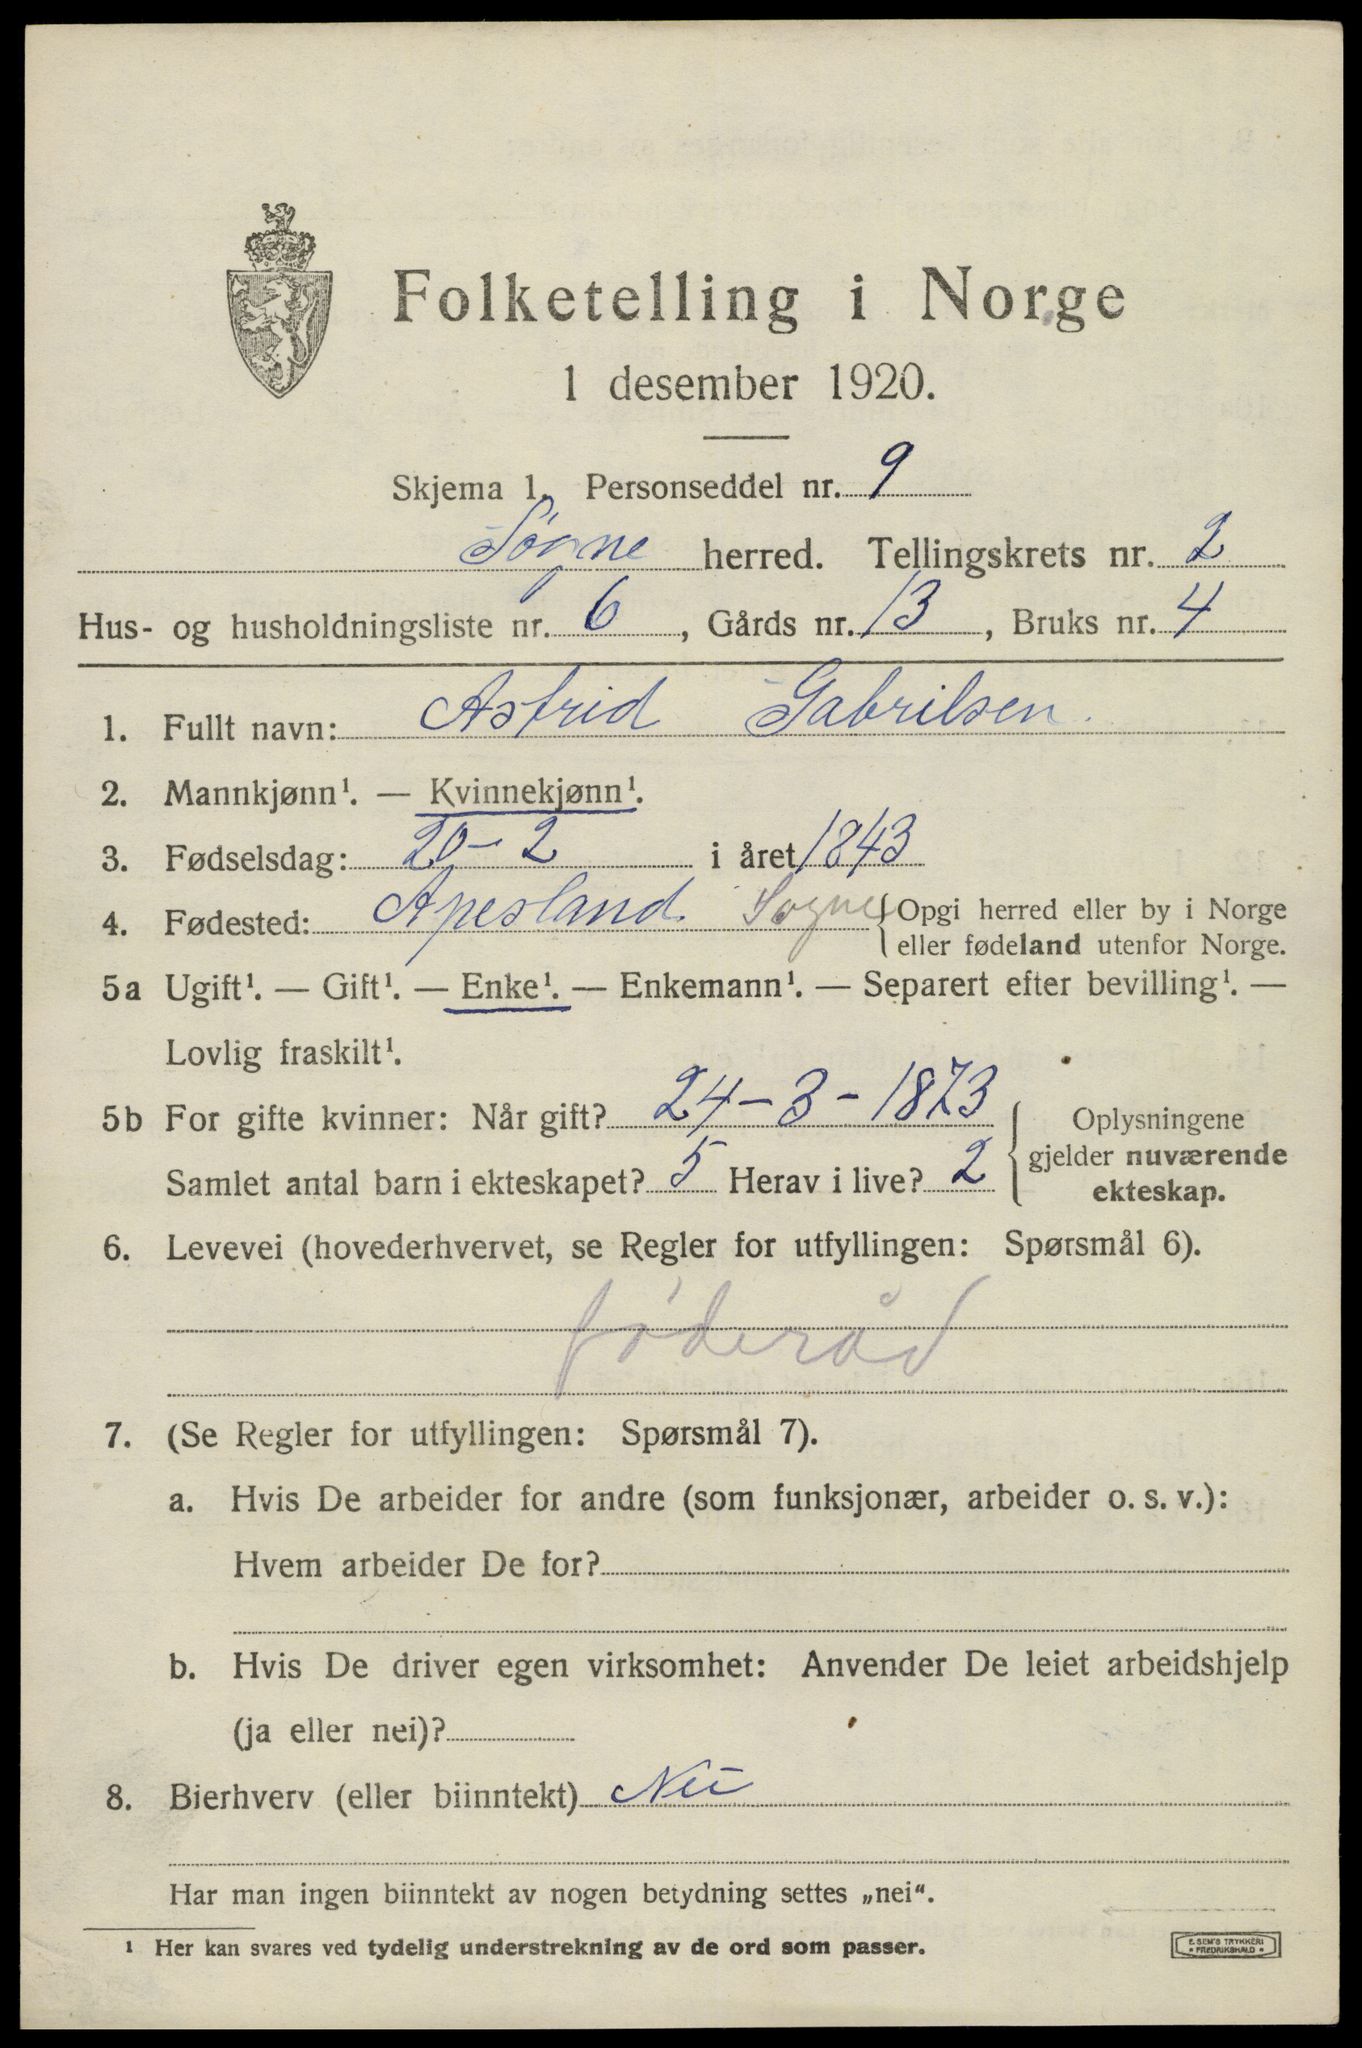 Folketelling i Norge
1 desember 1920.
Skjema 1. Personseddel nr. 9
Søgne herred. Tellingskrets nr. 2
Hus- og husholdningsliste nr. 6, Gårds nr. 13, Bruks nr. 4
1. Fullt navn: Astrid Gabrilsen.
2. Mannkjønn¹. — Kvinnekjønn¹.
3. Fødselsdag: 20-2 i året 1843
4. Fødested: Apesland Søgne { Opgi herred eller by i Norge
eller fødeland utenfor Norge.
5a Ugift¹. — Gift¹. — Enke¹. — Enkemann¹. — Separert efter bevilling¹. —
Lovlig fraskilt¹.
5b For gifte kvinner: Når gift? 24-3-1873
Samlet antal barn i ekteskapet? 5 Herav i live? 2
Oplysningene
gjelder nuværende
ekteskap.
6. Levevei (hovederhvervet, se Regler for utfyllingen: Spørsmål 6).
føderåd
7. (Se Regler for utfyllingen: Spørsmål 7).
a. Hvis De arbeider for andre (som funksjonær, arbeider o. s. v.):
Hvem arbeider De for?
b. Hvis De driver egen virksomhet: Anvender De leiet arbeidshjelp
(ja eller nei)?
8. Bierhverv (eller biinntekt) Nei
Har man ingen biinntekt av nogen betydning settes „nei".
¹ Her kan svares ved tydelig understrekning av de ord som passer.
E SEM'S TRYKKERI
• FREDRIKSHALD •